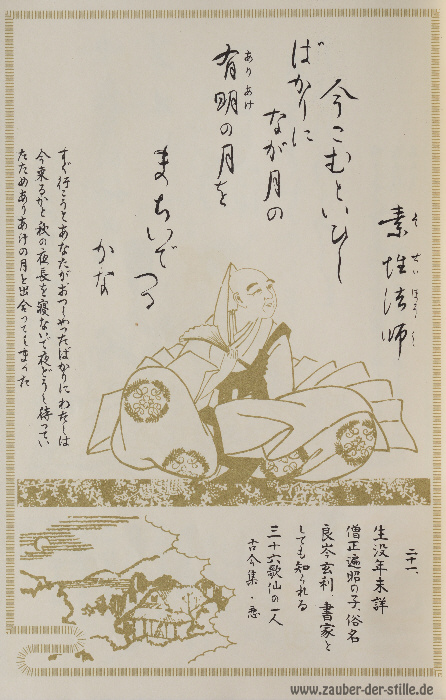 素性法師
そせいほうし
今こむといひし
ばかりに
なが月の
有明の月を
ありあけ
まちいで
つる
かな
すぐ行こうとあなたがおっしゃったばかりにわたしは
今来るかと秋の夜長を寝ないで夜どうし待ってい
たためありあけの月と出合ってしまった
二十一
生没年未詳
僧正遍昭の子、俗名
良岑玄利 書家と
しても知られる
三十六歌仙の一人
古今集・恋
www.zauber-der-stille.de